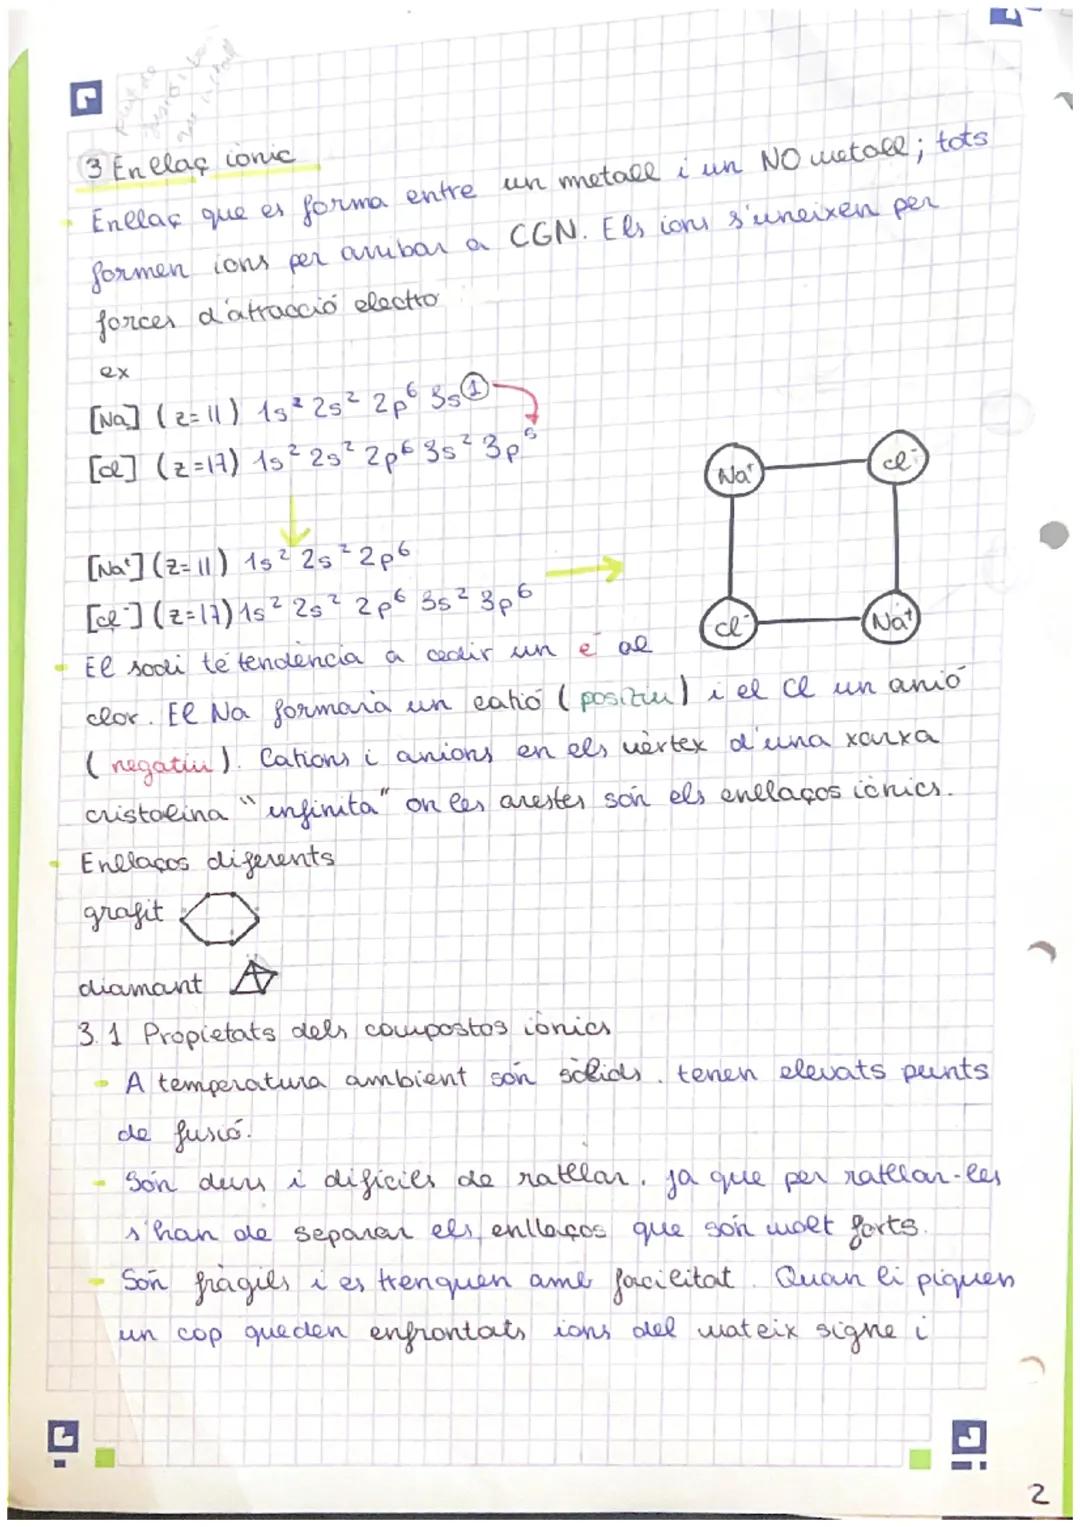 3 Enllaç iònic
Enllaç que es forma entre un metall i un NO metall; tots
formen ions per arribar a CGN. Els ions s'uneixen per
forces d'atracció electro
ex
[Na] (z=11) 1s² 2s² 2p⁶ 3s①
[Cl] (z=17) 1s² 2s² 2p⁶ 3s² 3p⁵
Na⁺ Cl⁻
[Na⁺] (z=11) 1s² 2s² 2p⁶
[Cl⁻] (z=17) 1s² 2s² 2p⁶ 3s² 3p⁶
Cl⁻ Na⁺
El sodi té tendència a cedir un e⁻ al
clor. El Na formarà un catió (positiu) i el Cl un anió
(negatiu). Cations i anions en els vèrtex d'una xarxa
cristalina "infinita" on les arestes són els enllaços iònics.
Enllaços diferents
grafit
diamant
3.1 Propietats dels compostos iònics
A temperatura ambient són sòlids. tenen elevats punts
de fusió.
Són durs i difícils de ratllar. ja que per ratllar-les
s'han de separar els enllaços que són molt forts.
Són fràgils i es trenquen amb facilitat. Quan li piquen
un cop queden enfrontats ions del mateix signe i
2